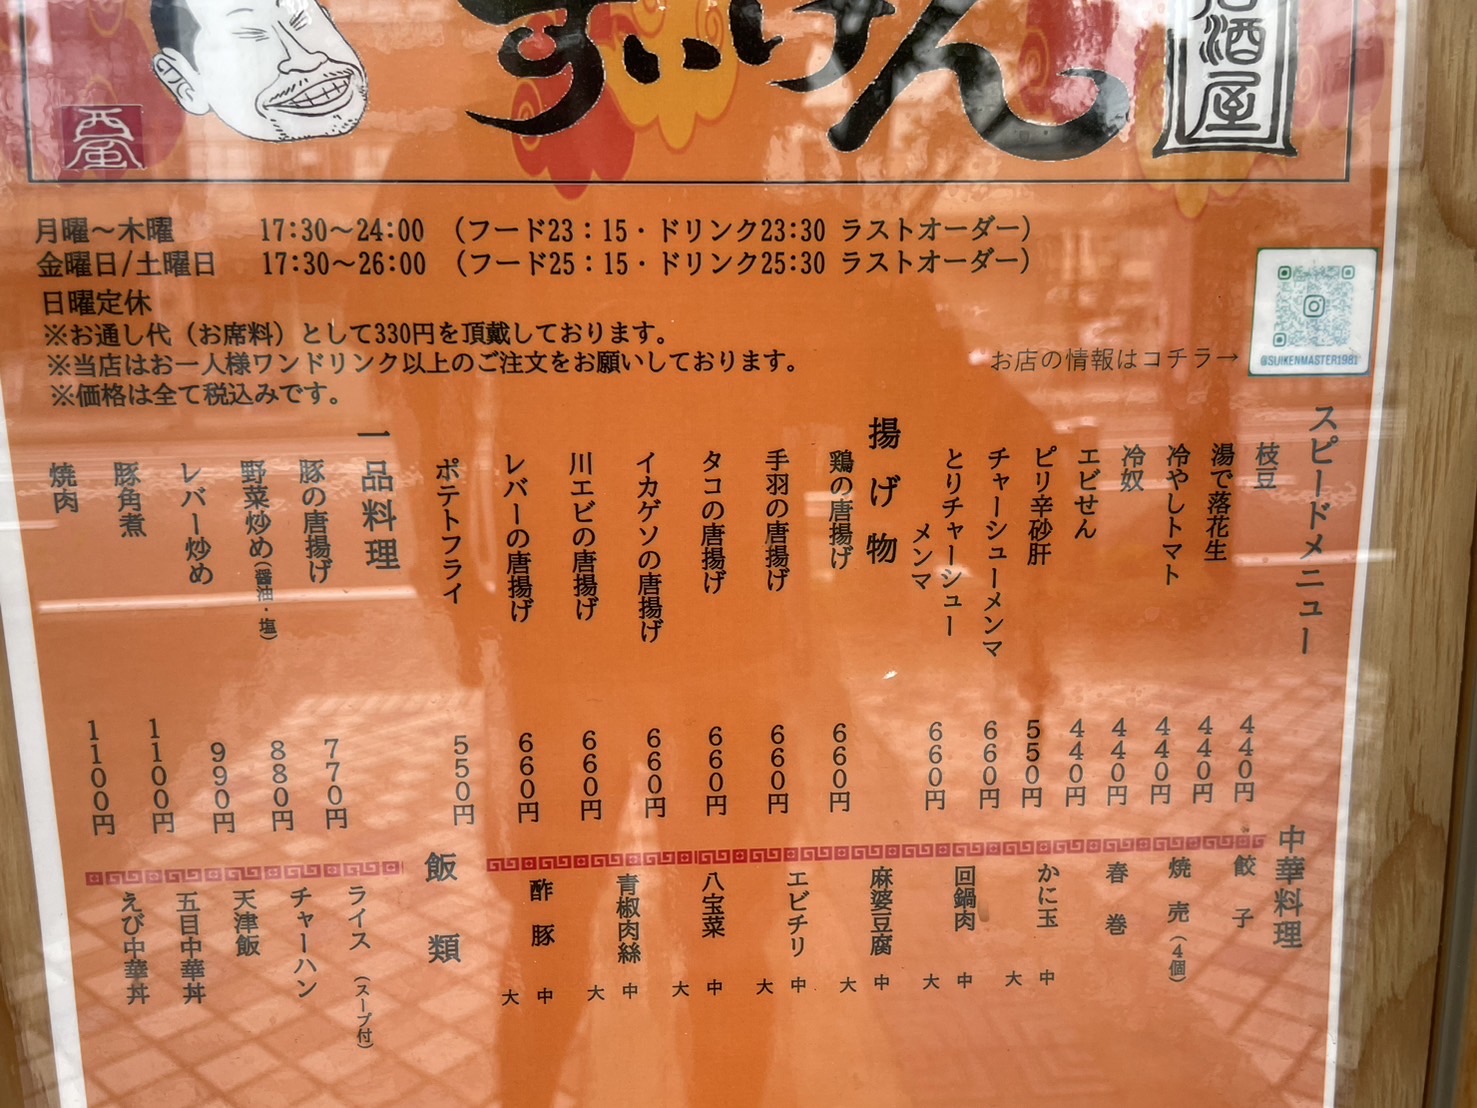 すいけん
居酒屋
月曜〜木曜 17:30〜24:00 (フード23：15・ドリンク23:30 ラストオーダー)
金曜日/土曜日 17:30〜26:00 (フード25：15・ドリンク25:30 ラストオーダー)
日曜定休
※お通し代（お席料）として330円を頂戴しております。
※当店はお一人様ワンドリンク以上のご注文をお願いしております。
※価格は全て税込みです。
お店の情報はコチラ→
@SUIKENMASTER1981
スピードメニュー
枝豆 440円
湯で落花生 440円
冷やしトマト 440円
冷奴 440円
エビせん 440円
ピリ辛砂肝 550円
チャーシューメンマ 660円
とりチャーシューメンマ 660円
揚げ物
鶏の唐揚げ 660円
手羽の唐揚げ 660円
タコの唐揚げ 660円
イカゲソの唐揚げ 660円
川エビの唐揚げ 660円
レバーの唐揚げ 660円
ポテトフライ 550円
一品料理
豚の唐揚げ 770円
野菜炒め(醤油・塩) 880円
レバー炒め 990円
豚角煮 1100円
焼肉 1100円
中華料理
餃子
焼売(4個)
春巻
かに玉 中 大
回鍋肉 中 大
麻婆豆腐 中 大
エビチリ 中 大
八宝菜 中 大
青椒肉絲 中 大
酢豚 中 大
飯類
ライス (スープ付)
チャーハン
天津飯
五目中華丼
えび中華丼